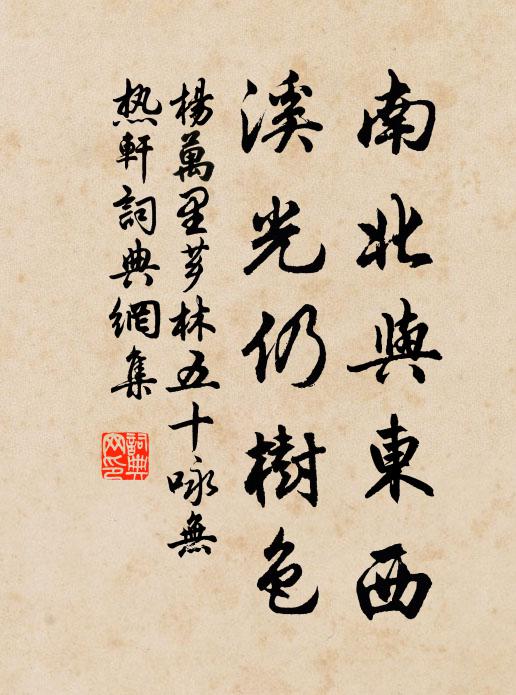 南北與東西
溪光仍樹色
楊萬里芗林五十咏無
热軒詞典網集
詞典
网印